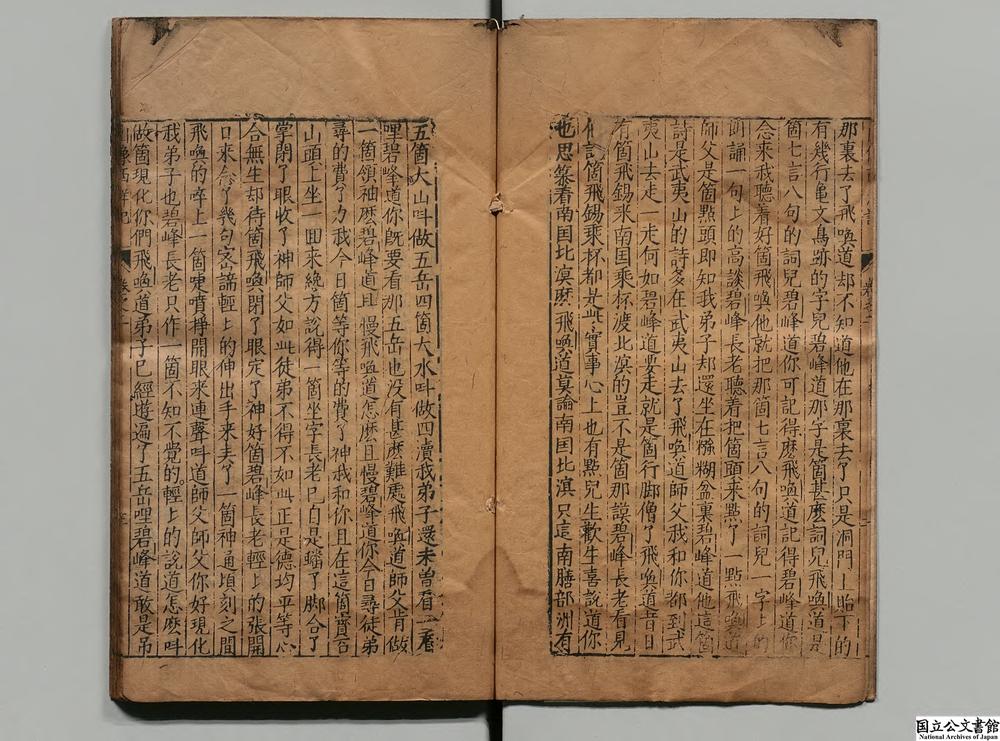 那裏去了飛喚道却不知道他在那裏去了只是洞門上貽下的
有幾行龜文鳥跡的字兒碧峰道那字是箇甚麽詞兒飛喚道是
箇七言八句的詞兒碧峰道你可記得麽飛喚道記得碧峰道你
念來我聽着好箇飛喚他就把那箇七言八句的詞兒一字上的
朗誦一句上的高談碧峰長老聽着把箇頭來㸃了一㸃飛喚道
師父是箇㸃頭即知我弟子却還坐在糨糊盆裏碧峰道他這箇
詩是武夷山的詩多在武夷山去了飛喚道師父我和你都到武
夷山去走一走何如碧峰道要走就是箇行脚僧了飛喚道昔日
有箇飛錫來南囯乗杯渡北溟的豈不是箇那謨碧峰長老看見
他說箇飛錫乗杯都是此實事心上也有㸃兒生歡生喜說道你
也思慕着南囯北溟麽飛喚道莫論南囯北溟只這南膳部洲有
五箇大山呌做五岳四箇大水呌做四瀆我弟子還未曽看一看
哩碧峰道你旣要看那五岳也没有甚麽難處飛喚道師父肯做
一箇領袖麽碧峰道且慢飛喚道怎麽且慢碧峰道你今日尋徒弟
尋的費了力我今日箇等你等的費了神我和你且在這箇寳合
山頭上坐一囬來纔方說得一箇坐字長老巳自是蟠了脚合了
掌閉了眼收了神師父如此徒弟不得不如此正是德均平等心
合無生却待箇飛喚閉了眼定了神好箇碧峰長老輕上的張開
口來念了幾句宻諦輕上的伸出手來丢了一箇神通頃刻之間
飛喚的啐上一箇嚏噴掙開眼來連聲呌道師父師父你好現化
我弟子也碧峰長老只作一箇不知不覺的輕上的說道怎麽呌
做箇現化你們飛喚道弟子巳經遊遍了五岳哩碧峰道敢是弔
国立公文書館
National Archives of Japan